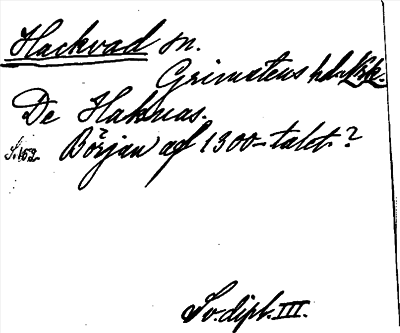 Hackvad sn.
Grimstens hd. Nrk.
De Haknas.
S. 152. Början af 1300-talet?
Sv. dipl. III.